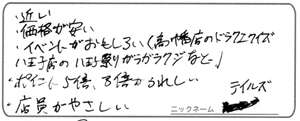 ・近い
・価格が安い
・イベントがおもしろい(高幡店のドラクエクイズ
八王子店の八王子祭りガラガラクジなど。)
・ポイント5倍、8倍がうれしい
・店員がやさしい
テイルズ
ニックネーム